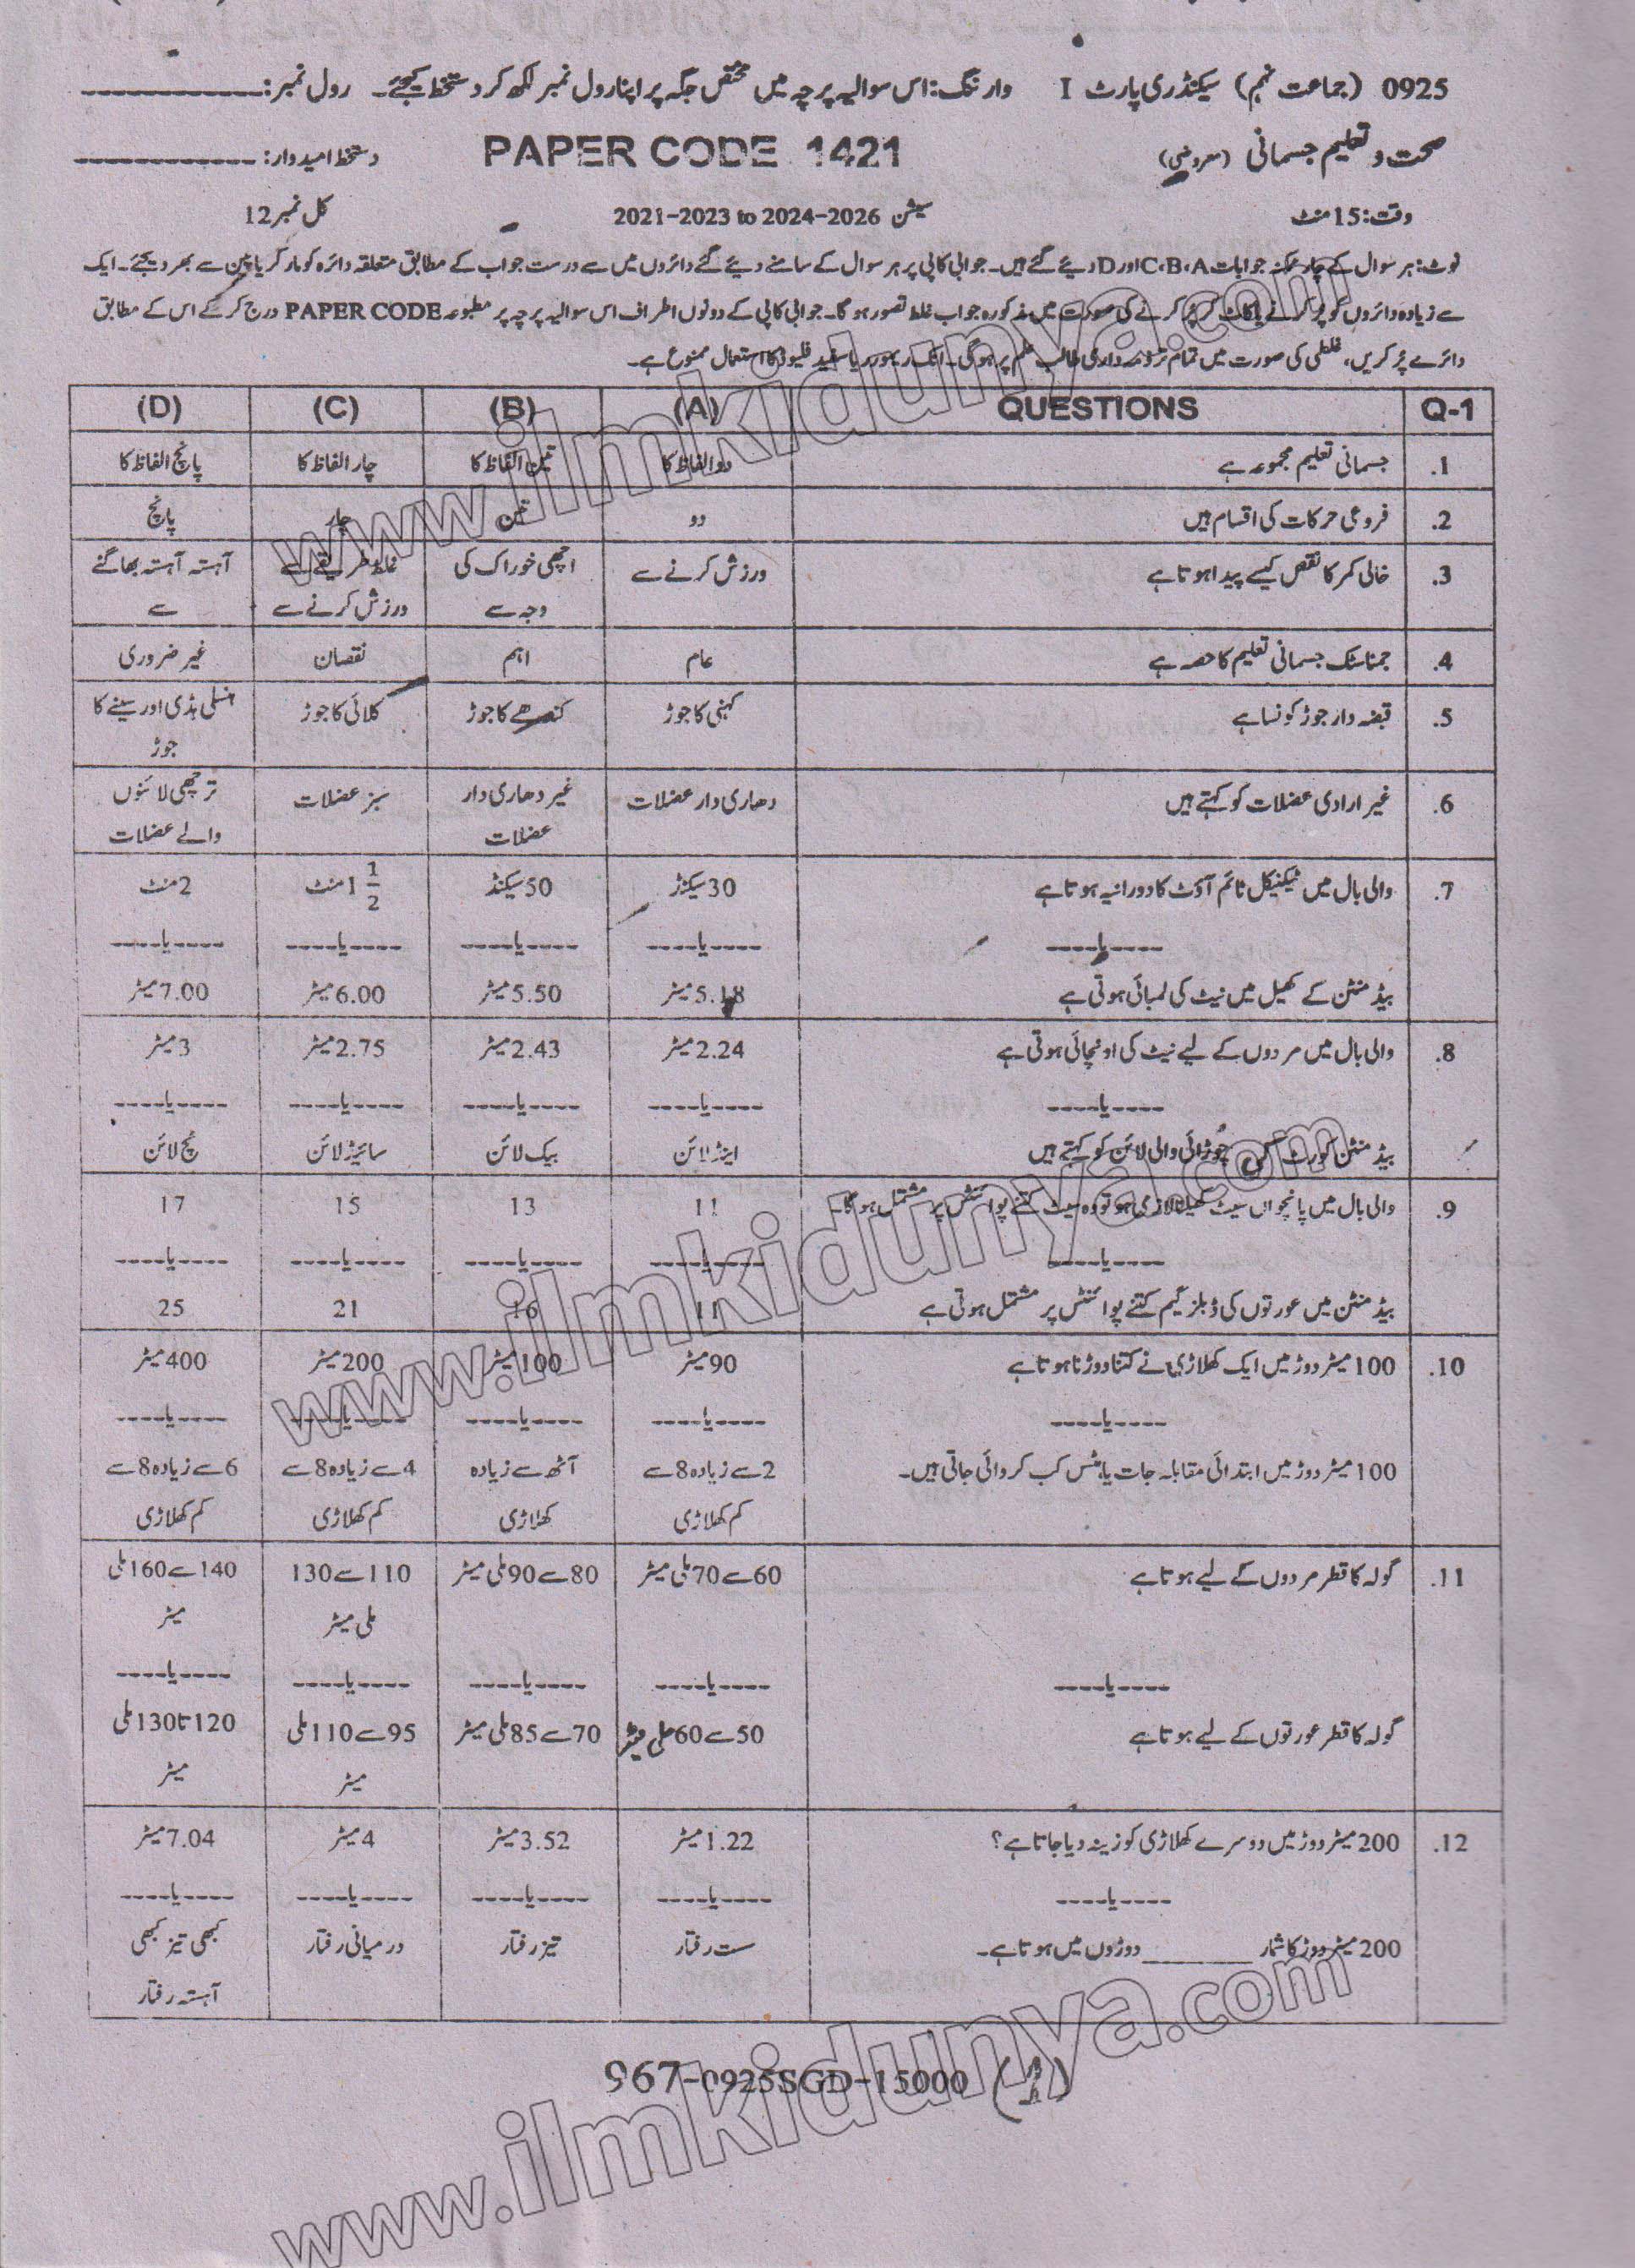 0925 (جماعت نہم) سیکنڈری پارٹ I وارننگ: اس سوالیہ پرچہ میں مختص جگہ پر اپنا رول نمبر لکھ کر دستخط کیجئے۔ رول نمبر: ____________
صحت و تعلیم جسمانی (معروضی) PAPER CODE 1421 دستخط امیدوار: ____________
وقت: 15 منٹ سیشن 2021-2023 to 2024-2026 کل نمبر 12
نوٹ: ہر سوال کے چار ممکنہ جوابات C،B،A اور D دیئے گئے ہیں۔ جوابی کاپی پر ہر سوال کے سامنے دیئے گئے دائروں میں سے درست جواب کے مطابق متعلقہ دائرہ کو مارکر یا پین سے بھر دیجئے۔ ایک
سے زیادہ دائروں کو پُر کرنے یا کاٹ کر پُر کرنے کی صورت میں مذکورہ جواب غلط تصور ہوگا۔ جوابی کاپی کے دونوں اطراف اس سوالیہ پرچہ پر مطبوعہ PAPER CODE درج کر کے اس کے مطابق
دائرے پُر کریں، غلطی کی صورت میں تمام تر ذمہ داری طالب علم پر ہوگی۔ انک ریموور یا سفید فلیوئڈ کا استعمال ممنوع ہے۔
Q-1 QUESTIONS (A) (B) (C) (D)
1. جسمانی تعلیم مجموعہ ہے دو الفاظ کا تین الفاظ کا چار الفاظ کا پانچ الفاظ کا
2. فروعی حرکات کی اقسام ہیں دو تین چار پانچ
3. خالی کمر کا نقص کیسے پیدا ہوتا ہے ورزش کرنے سے اچھی خوراک کی غلط طریقے سے آہستہ آہستہ بھاگنے
وجہ سے ورزش کرنے سے سے
4. جمناسٹک جسمانی تعلیم کا حصہ ہے عام اہم نقصان غیر ضروری
5. قبضہ دار جوڑ کونسا ہے کہنی کا جوڑ کندھے کا جوڑ کلائی کا جوڑ ہنسلی ہڈی اور سینے کا
جوڑ
6. غیر ارادی عضلات کو کہتے ہیں دھاری دار عضلات غیر دھاری دار سبز عضلات ترچھی لائنوں
عضلات والے عضلات
7. والی بال میں ٹیکنیکل ٹائم آؤٹ کا دورانیہ ہوتا ہے 30 سیکنڑ 50 سیکنڈ 1 1/2 منٹ 2 منٹ
----یا---- ----یا---- ----یا---- ----یا---- ----یا----
بیڈمنٹن کے کھیل میں نیٹ کی لمبائی ہوتی ہے 5.18 میٹر 5.50 میٹر 6.00 میٹر 7.00 میٹر
8. والی بال میں مردوں کے لیے نیٹ کی اونچائی ہوتی ہے 2.24 میٹر 2.43 میٹر 2.75 میٹر 3 میٹر
----یا---- ----یا---- ----یا---- ----یا---- ----یا----
بیڈمنٹن کورٹ کی چوڑائی والی لائن کو کہتے ہیں اینڈ لائن بیک لائن سائیڈ لائن ٹچ لائن
9. والی بال میں پانچواں سیٹ کھیلنا لازمی ہو تو وہ سیٹ کتنے پوائنٹس پر مشتمل ہوگا۔ 11 13 15 17
----یا---- ----یا---- ----یا---- ----یا---- ----یا----
بیڈمنٹن میں عورتوں کی ڈبلز گیم کتنے پوائنٹس پر مشتمل ہوتی ہے 11 16 21 25
10. 100 میٹر دوڑ میں ایک کھلاڑی نے کتنا دوڑنا ہوتا ہے 90 میٹر 100 میٹر 200 میٹر 400 میٹر
----یا---- ----یا---- ----یا---- ----یا---- ----یا----
100 میٹر دوڑ میں ابتدائی مقابلہ جات یا ہیٹس کب کروائی جاتی ہیں۔ 2 سے زیادہ 8 سے آٹھ سے زیادہ 4 سے زیادہ 8 سے 6 سے زیادہ 8 سے
کم کھلاڑی کھلاڑی کم کھلاڑی کم کھلاڑی
11. گولہ کا قطر مردوں کے لیے ہوتا ہے 60 سے 70 ملی میٹر 80 سے 90 ملی میٹر 110 سے 130 140 سے 160 ملی
ملی میٹر میٹر
----یا---- ----یا---- ----یا---- ----یا---- ----یا----
گولہ کا قطر عورتوں کے لیے ہوتا ہے 50 سے 60 ملی میٹر 70 سے 85 ملی میٹر 95 سے 110 ملی 120 تا 130 ملی
میٹر میٹر
12. 200 میٹر دوڑ میں دوسرے کھلاڑی کو زینہ دیا جاتا ہے؟ 1.22 میٹر 3.52 میٹر 4 میٹر 7.04 میٹر
----یا---- ----یا---- ----یا---- ----یا---- ----یا----
200 میٹر دوڑ کا شمار ________ دوڑوں میں ہوتا ہے۔ ست رفتار تیز رفتار درمیانی رفتار کبھی تیز کبھی
آہستہ رفتار
967-0925SGD-15000 (1)
www.ilmkidunya.com
www.ilmkidunya.com
www.ilmkidunya.com